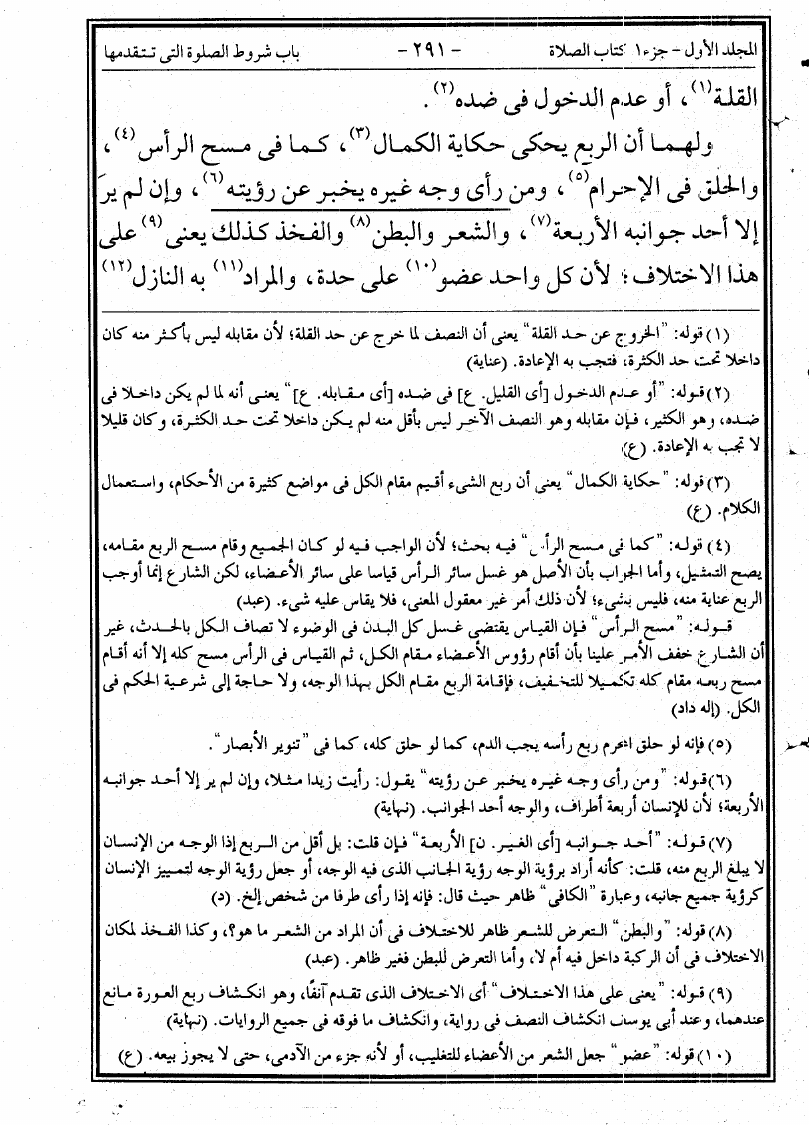 المجلد الأول - جزء ١ كتاب الصلاة - ٢٩١ - باب شروط الصلوة التى تتقدمها
القلة(١)، أو عدم الدخول فى ضده(٢).
ولهما أن الربع يحكى حكاية الكمال(٣)، كما فى مسح الرأس(٤)،
والحلق فى الإحرام(٥)، ومن رأى وجه غيره يخبر عن رؤيته(٦)، وإن لم يرَ
إلا أحد جوانبه الأربعة(٧)، والشعر والبطن(٨) والفخذ كذلك يعنى(٩) على
هذا الاختلاف؛ لأن كل واحد عضو(١٠) على حدة، والمراد(١١) به النازل(١٢)
(١) قوله: "الخروج عن حد القلة" يعنى أن النصف لما خرج عن حد القلة؛ لأن مقابله ليس بأكثر منه كان
داخلا تحت حد الكثرة، فتجب به الإعادة. (عناية)
(٢) قوله: "أو عدم الدخول [أى القليل. ع] فى ضده [أى مقابله. ع]" يعنى أنه لما لم يكن داخلا فى
ضده، وهو الكثير، فإن مقابله وهو النصف الآخر ليس بأقل منه لم يكن داخلا تحت حد الكثرة، وكان قليلا
لا تجب به الإعادة. (ع)
(٣) قوله: "حكاية الكمال" يعنى أن ربع الشىء أقيم مقام الكل فى مواضع كثيرة من الأحكام، واستعمال
الكلام. (ع)
(٤) قوله: "كما فى مسح الرأس" فيه بحث؛ لأن الواجب فيه لو كان الجميع وقام مسح الربع مقامه،
يصح التمثيل، وأما الجواب بأن الأصل هو غسل سائر الرأس قياسا على سائر الأعضاء، لكن الشارع إنما أوجب
الربع عناية منه، فليس بشىء؛ لأن ذلك أمر غير معقول المعنى، فلا يقاس عليه شىء. (عبد)
قوله: "مسح الرأس" فإن القياس يقتضى غسل كل البدن فى الوضوء لا تصاف الكل بالحدث، غير
أن الشارع خفف الأمر علينا بأن أقام رؤوس الأعضاء مقام الكل، ثم القياس فى الرأس مسح كله إلا أنه أقام
مسح ربعه مقام كله تكميلا للتخفيف، فإقامة الربع مقام الكل بهذا الوجه، ولا حاجة إلى شرعية الحكم فى
الكل. (إله داد)
(٥) فإنه لو حلق المحرم ربع رأسه يجب الدم، كما لو حلق كله، كما فى "تنوير الأبصار".
(٦) قوله: "ومن رأى وجه غيره يخبر عن رؤيته" يقول: رأيت زيدا مثلا، وإن لم ير إلا أحد جوانبه
الأربعة؛ لأن للإنسان أربعة أطراف، والوجه أحد الجوانب. (نهاية)
(٧) قوله: "أحد جوانبه [أى الغير. ن] الأربعة" فإن قلت: بل أقل من الربع إذا الوجه من الإنسان
لا يبلغ الربع منه، قلت: كأنه أراد برؤية الوجه رؤية الجانب الذى فيه الوجه، أو جعل رؤية الوجه لتمييز الإنسان
كرؤية جميع جانبه، وعبارة "الكافى" ظاهر حيث قال: فإنه إذا رأى طرفا من شخص إلخ. (د)
(٨) قوله: "والبطن" التعرض للشعر ظاهر للاختلاف فى أن المراد من الشعر ما هو؟، وكذا الفخذ لمكان
الاختلاف فى أن الركبة داخل فيه أم لا، وأما التعرض للبطن فغير ظاهر. (عبد)
(٩) قوله: "يعنى على هذا الاختلاف" أى الاختلاف الذى تقدم آنفًا، وهو انكشاف ربع العورة مانع
عندهما، وعند أبى يوسف انكشاف النصف فى رواية، وانكشاف ما فوقه فى جميع الروايات. (نهاية)
(١٠) قوله: "عضو" جعل الشعر من الأعضاء للتغليب، أو لأنه جزء من الآدمى، حتى لا يجوز بيعه. (ع)